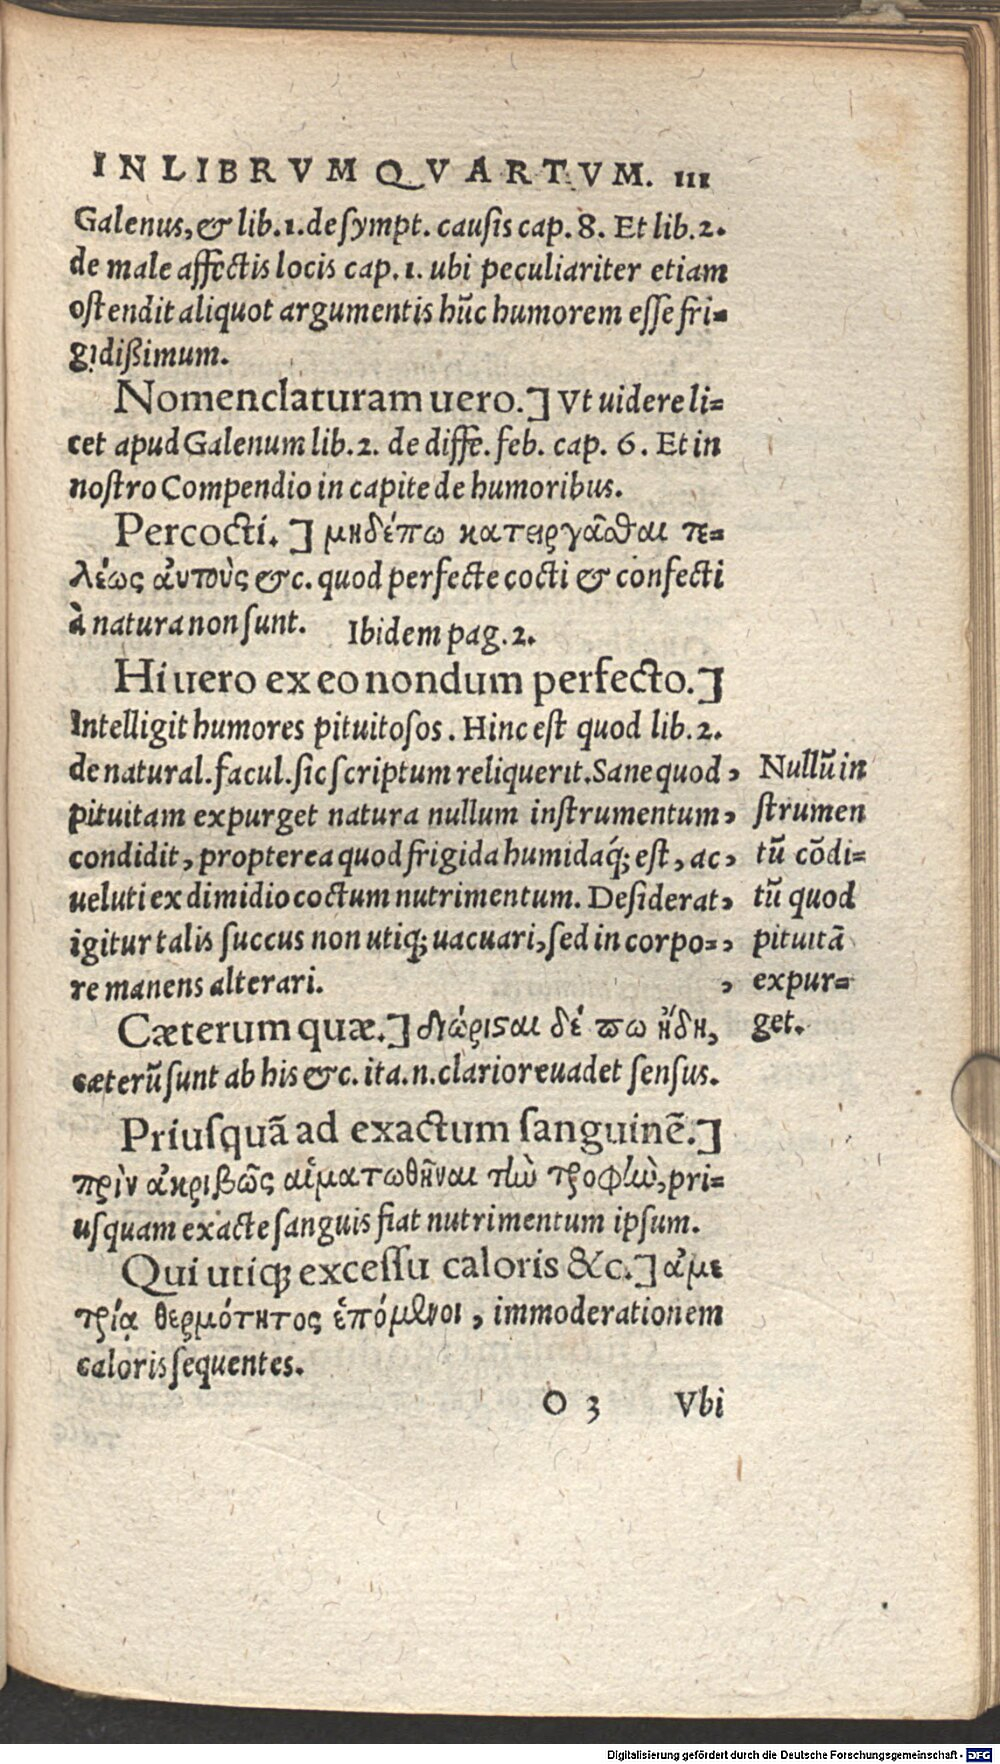 IN LIBRVM QVARTVM. 111
Galenus, & lib.1. de sympt. causis cap. 8. Et lib. 2.
de male affectis locis cap. 1. ubi peculiariter etiam
ostendit aliquot argumentis hūc humorem esse fri=
gidißimum.
Nomenclaturam uero.] Vt uidere li=
cet apud Galenum lib. 2. de diffe. feb. cap. 6. Et in
nostro Compendio in capite de humoribus.
Percocti.] μηδέπω κατειργᾶσθαι τε=
λέως ἀυτοὺς &c. quod perfecte cocti & confecti
à natura non sunt. Ibidem pag. 2.
Hi uero ex eo nondum perfecto.]
Intelligit humores pituitosos. Hinc est quod lib. 2.
de natural. facul. sic scriptum reliquerit. Sane quod,
pituitam expurget natura nullum instrumentum,
condidit, propterea quod frigida humidaq́; est, ac,
ueluti ex dimidio coctum nutrimentum. Desiderat,
igitur talis succus non utiq; uacuari, sed in corpo=,
re manens alterari. ,
Nullū in
strumen
tū cōdi=
tū quod
pituitā
expur=
get.
Cæterum quæ.] διώρισαι δέ πω ἤδη,
cæterū sunt ab his &c. ita.n. clarior euadet sensus.
Priusquā ad exactum sanguinē.]
πρὶν ἀκριβῶς αἱματωθῆναι τὴν τροφὴν, pri=
usquam exacte sanguis fiat nutrimentum ipsum.
Qui utiq; excessu caloris &c.] ἀμε
τρίᾳ θερμότητος ἑπόμενοι, immoderationem
caloris sequentes.
O 3 Vbi
Digitalisierung gefördert durch die Deutsche Forschungsgemeinschaft - DFG